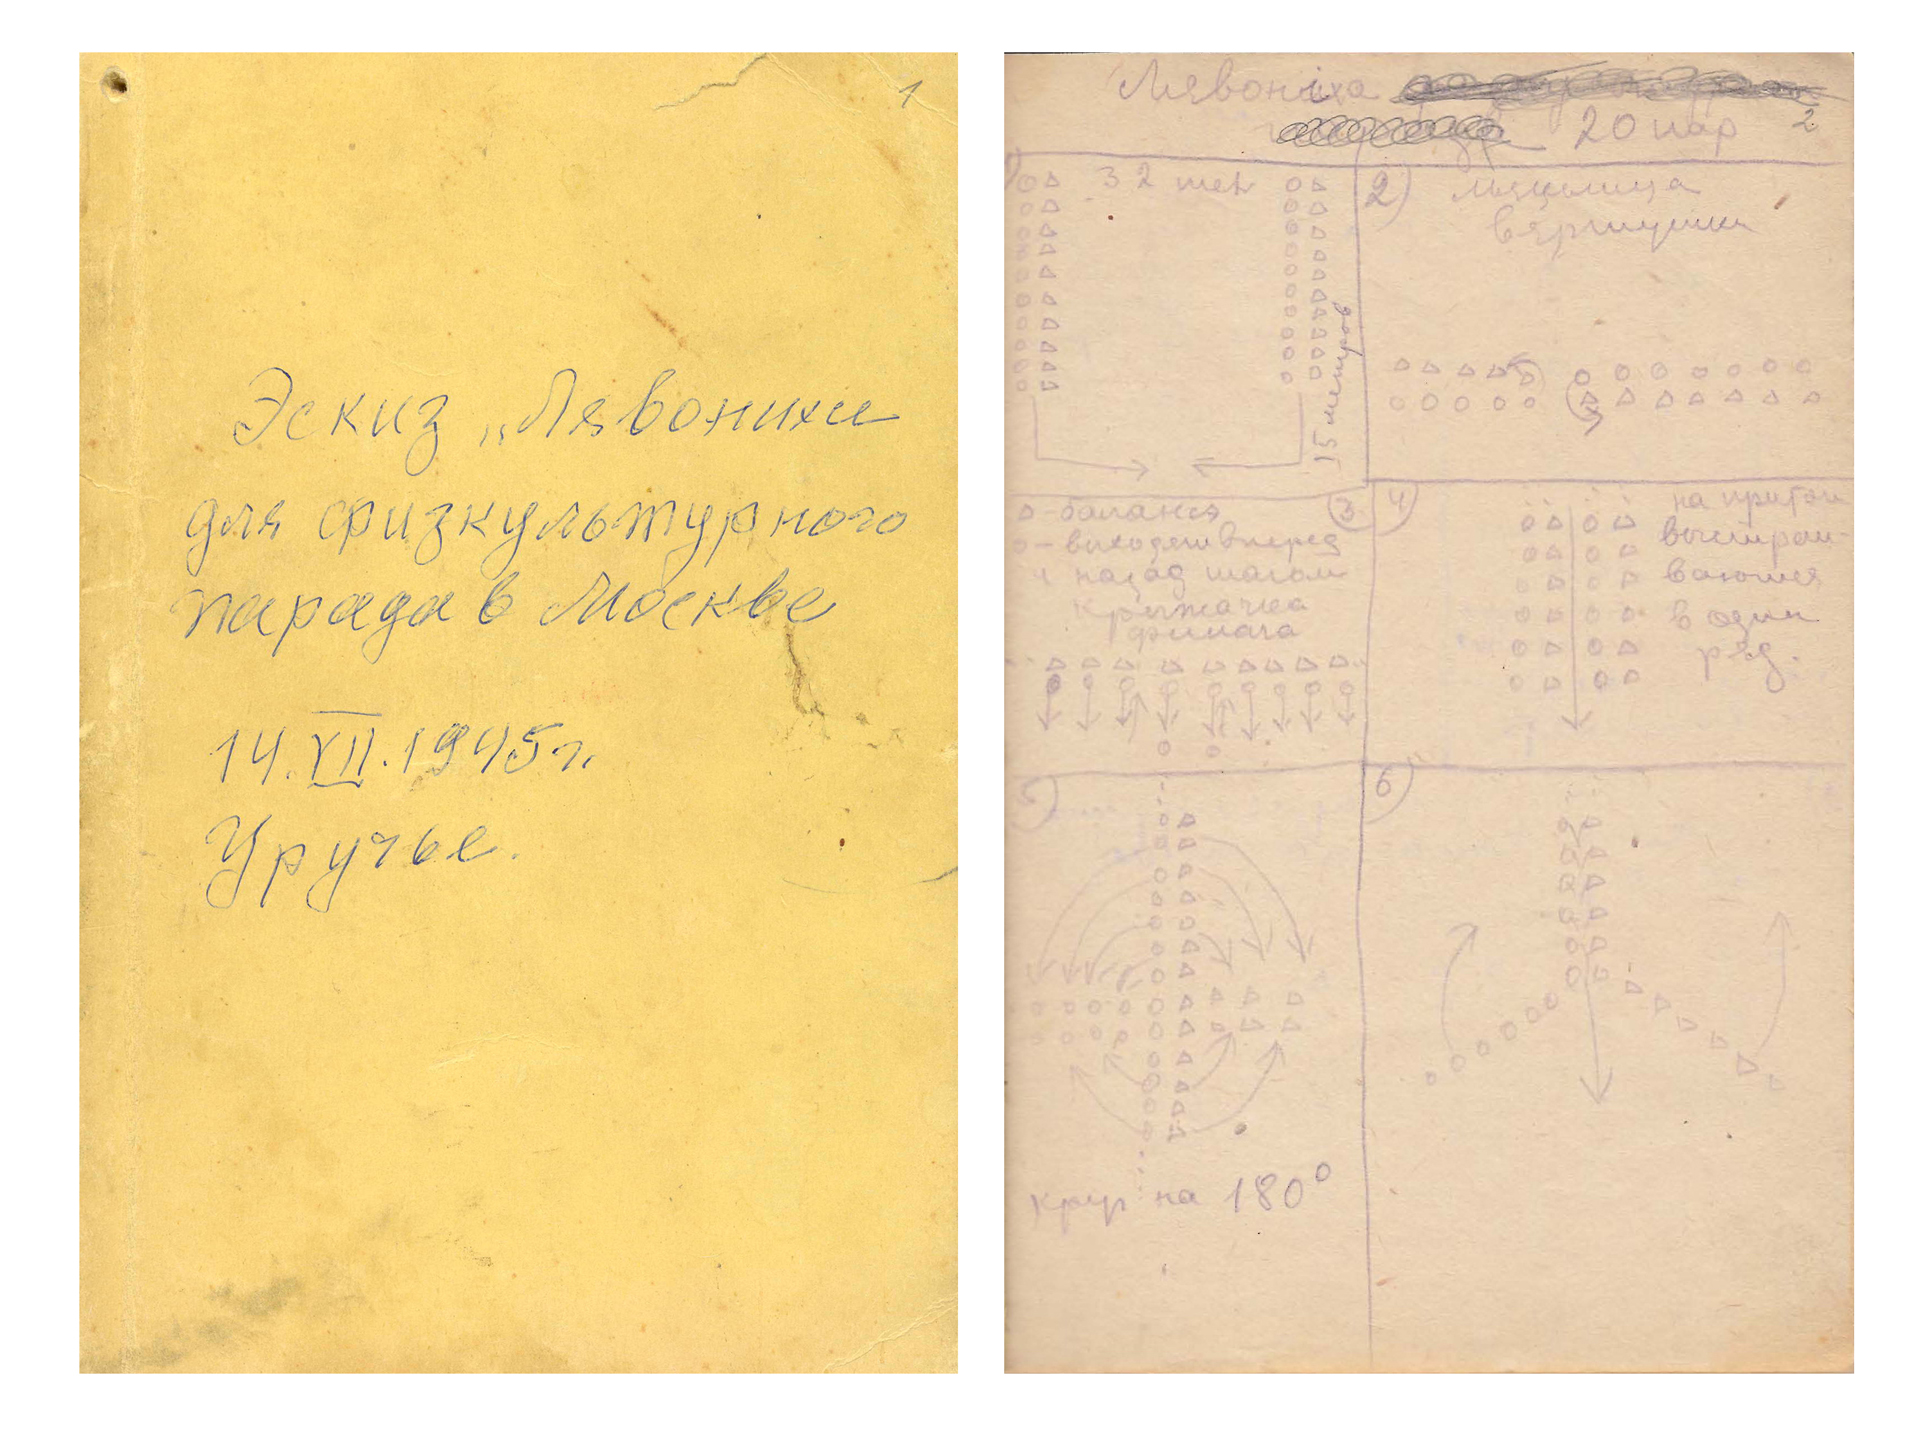 1
Эскиз „Лявонихи
для физкультурного
парада в Москве
14.VII.1945г.
Уручье.
Лявоніха
20 пар
2
32 чел
15 метров
2)
вяртушки
3
△ - баланся
○ - выходят вперед
и назад шагом
крыжачка
4)
на притоп
выстраи-
ваются
в один
ряд.
5)
круг на 180°
6)